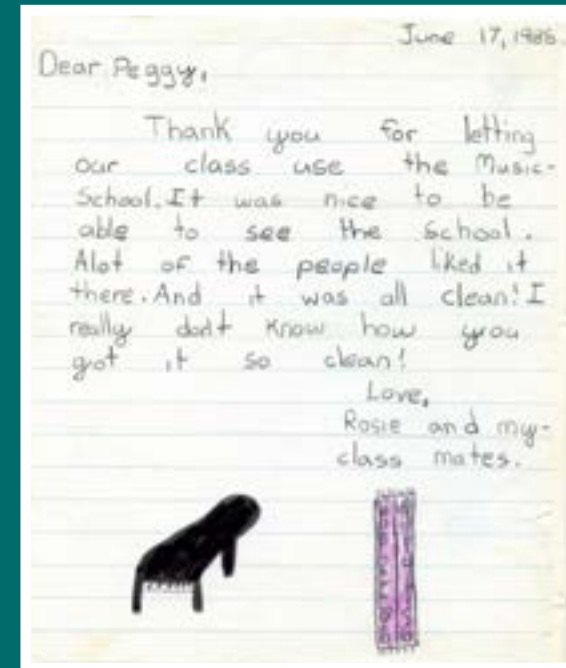 June 17, 1986.
Dear Peggy,
Thank you for letting
our class use the Music-
School. It was nice to be
able to see the School.
Alot of the people liked it
there. And it was all clean! I
really don't know how you
got it so clean!
Love,
Rosie and my-
class mates.